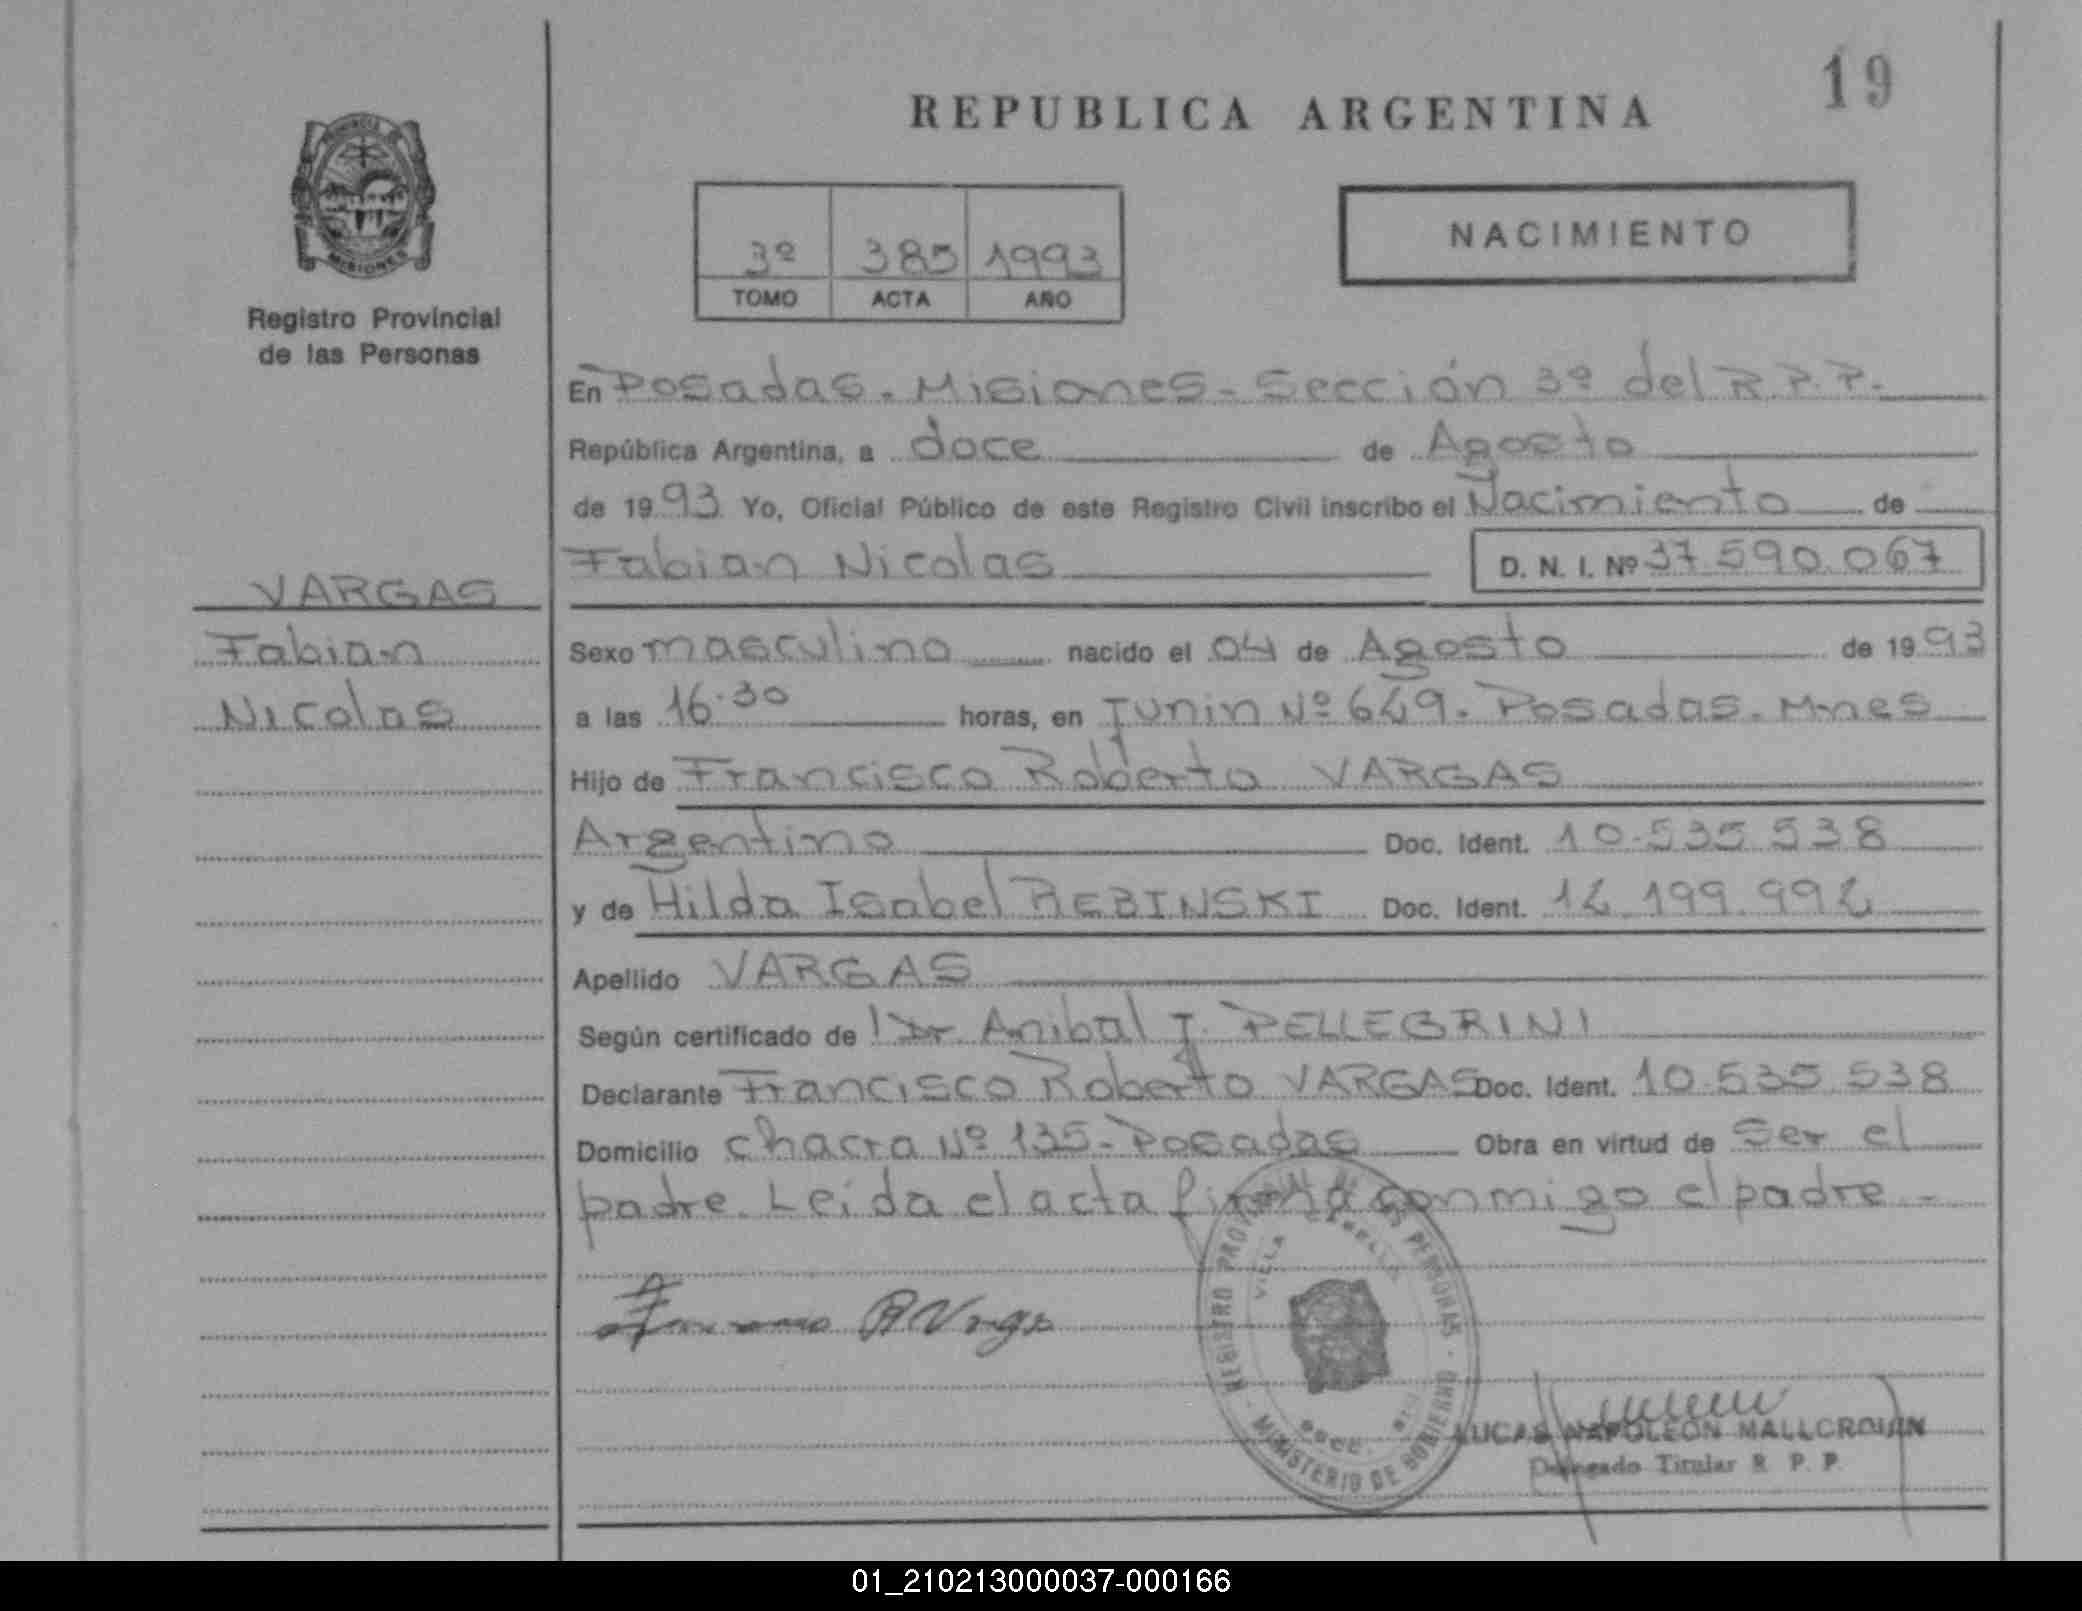 19
REPUBLICA ARGENTINA
PROVINCIA DE
MISIONES
Registro Provincial
de las Personas
3º 385 1993
TOMO ACTA AÑO
NACIMIENTO
En Posadas. Misiones - Sección 3º del R.P.P.
República Argentina, a doce de Agosto
de 1993 Yo, Oficial Público de este Registro Civil inscribo el Nacimiento de
Fabian Nicolas D. N. I. Nº 37.590.067
VARGAS
Fabian
Nicolas
Sexo masculino nacido el 04 de Agosto de 1993
a las 16.30 horas, en Junin Nº 649. Posadas. Mnes
Hijo de Francisco Roberto VARGAS
Argentino Doc. Ident. 10.535.538
y de Hilda Isabel REBINSKI Doc. Ident. 14.199.994
Apellido VARGAS
Según certificado de Dr. Anibal J. PELLEGRINI
Declarante Francisco Roberto VARGAS Doc. Ident. 10.535.538
Domicilio chacra Nº 135 - Posadas Obra en virtud de Ser el
padre. Leida el acta firma conmigo el padre -
REGISTRO PROVINCIAL DE LAS PERSONAS
VILLA CABELLO
SECC.
MINISTERIO DE GOBIERNO
R Vargas
LUCAS NAPOLEON
Delegado Titular R. P. P.
01_210213000037-000166